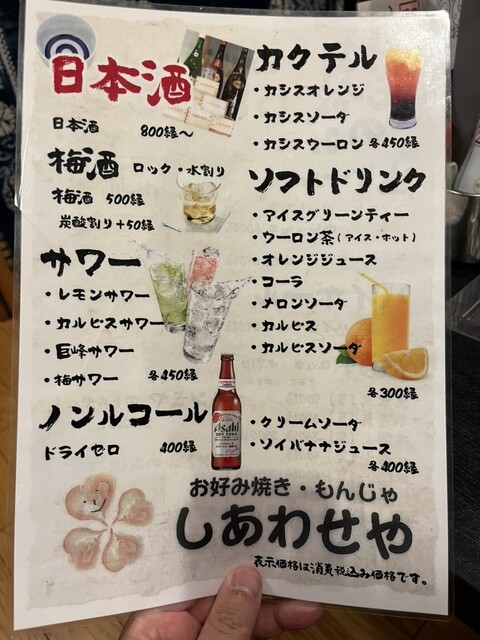 日本酒
日本酒 800縁～
梅酒 ロック・水割り
梅酒 500縁
炭酸割り+50縁
サワー
・レモンサワー
・カルピスサワー
・巨峰サワー
・梅サワー 各450縁
ノンルコール
ドライゼロ 400縁
カクテル
・カシスオレンジ
・カシスソーダ
・カシスウーロン 各450縁
ソフトドリンク
・アイスグリーンティー
・ウーロン茶(アイス・ホット)
・オレンジジュース
・コーラ
・メロンソーダ
・カルピス
・カルピスソーダ
各300縁
・クリームソーダ
・ソイバナナジュース
各400縁
Asahi
お好み焼き・もんじゃ
しあわせや
表示価格は消費税込み価格です。